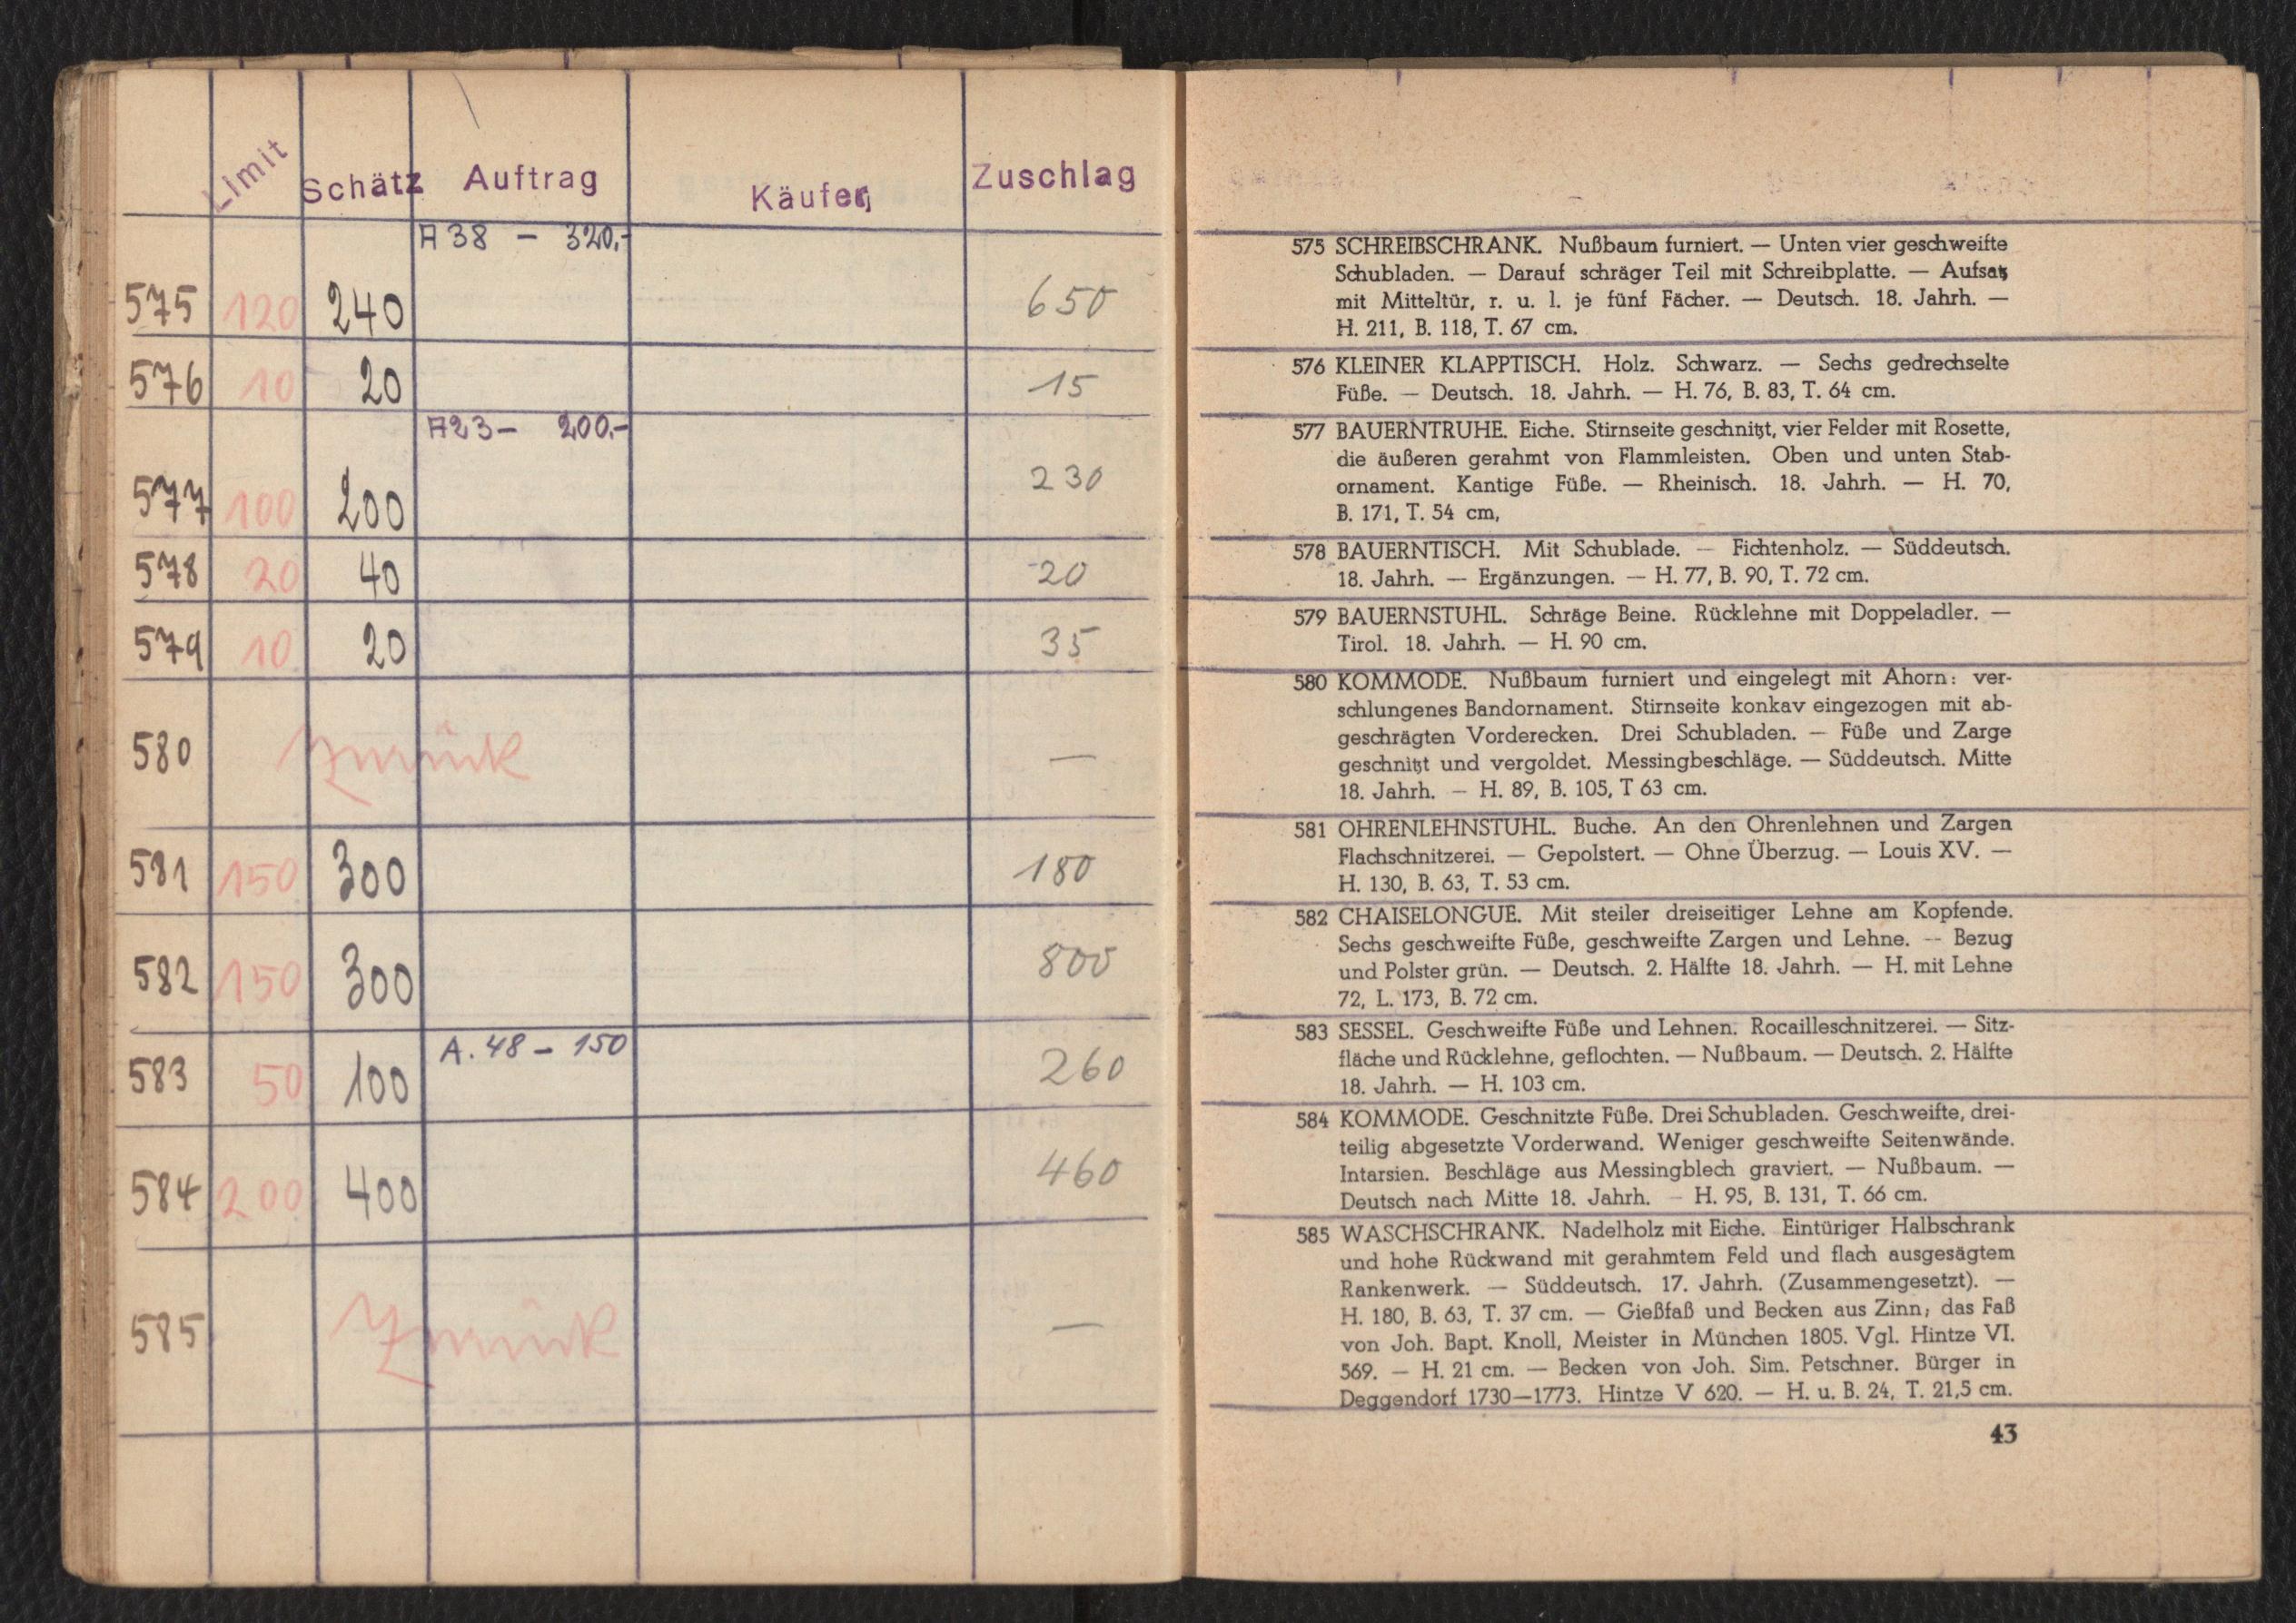 Limit Schätz Auftrag Käufer Zuschlag
A 38 – 320.-
575 120 240 650
576 10 20 15
A 23 – 200.-
577 100 200 230
578 20 40 20
579 10 20 35
580 Zurück —
581 150 300 180
582 150 300 800
A. 48 – 150
583 50 100 260
584 200 400 460
585 Zurück —
575 SCHREIBSCHRANK. Nußbaum furniert. — Unten vier geschweifte
Schubladen. — Darauf schräger Teil mit Schreibplatte. — Aufsatz
mit Mitteltür, r. u. l. je fünf Fächer. — Deutsch. 18. Jahrh. —
H. 211, B. 118, T. 67 cm.
576 KLEINER KLAPPTISCH. Holz. Schwarz. — Sechs gedrechselte
Füße. — Deutsch. 18. Jahrh. — H. 76, B. 83, T. 64 cm.
577 BAUERNTRUHE. Eiche. Stirnseite geschnitzt, vier Felder mit Rosette,
die äußeren gerahmt von Flammleisten. Oben und unten Stab-
ornament. Kantige Füße. — Rheinisch. 18. Jahrh. — H. 70,
B. 171, T. 54 cm,
578 BAUERNTISCH. Mit Schublade. — Fichtenholz. — Süddeutsch.
18. Jahrh. — Ergänzungen. — H. 77, B. 90, T. 72 cm.
579 BAUERNSTUHL. Schräge Beine. Rücklehne mit Doppeladler. —
Tirol. 18. Jahrh. — H. 90 cm.
580 KOMMODE. Nußbaum furniert und eingelegt mit Ahorn: ver-
schlungenes Bandornament. Stirnseite konkav eingezogen mit ab-
geschrägten Vorderecken. Drei Schubladen. — Füße und Zarge
geschnitzt und vergoldet. Messingbeschläge. — Süddeutsch. Mitte
18. Jahrh. — H. 89, B. 105, T 63 cm.
581 OHRENLEHNSTUHL. Buche. An den Ohrenlehnen und Zargen
Flachschnitzerei. — Gepolstert. — Ohne Überzug. — Louis XV. —
H. 130, B. 63, T. 53 cm.
582 CHAISELONGUE. Mit steiler dreiseitiger Lehne am Kopfende.
Sechs geschweifte Füße, geschweifte Zargen und Lehne. — Bezug
und Polster grün. — Deutsch. 2. Hälfte 18. Jahrh. — H. mit Lehne
72, L. 173, B. 72 cm.
583 SESSEL. Geschweifte Füße und Lehnen. Rocailleschnitzerei. — Sitz-
fläche und Rücklehne, geflochten. — Nußbaum. — Deutsch. 2. Hälfte
18. Jahrh. — H. 103 cm.
584 KOMMODE. Geschnitzte Füße. Drei Schubladen. Geschweifte, drei-
teilig abgesetzte Vorderwand. Weniger geschweifte Seitenwände.
Intarsien. Beschläge aus Messingblech graviert. — Nußbaum. —
Deutsch nach Mitte 18. Jahrh. — H. 95, B. 131, T. 66 cm.
585 WASCHSCHRANK. Nadelholz mit Eiche. Eintüriger Halbschrank
und hohe Rückwand mit gerahmtem Feld und flach ausgesägtem
Rankenwerk. — Süddeutsch. 17. Jahrh. (Zusammengesetzt). —
H. 180, B. 63, T. 37 cm. — Gießfaß und Becken aus Zinn; das Faß
von Joh. Bapt. Knoll, Meister in München 1805. Vgl. Hintze VI.
569. — H. 21 cm. — Becken von Joh. Sim. Petschner. Bürger in
Deggendorf 1730—1773. Hintze V 620. — H. u. B. 24, T. 21,5 cm.
43